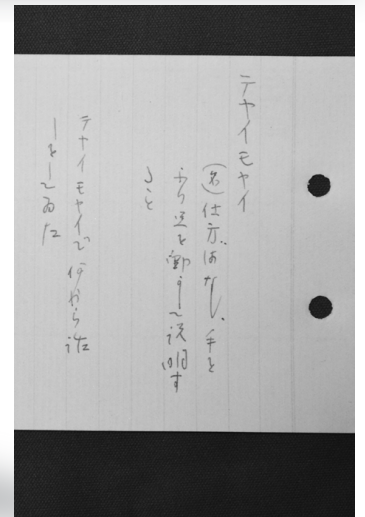 テヤイモヤイ
(名)仕方ばなし、手を
ふり足を動かして説明す
ること
テヤイモヤイで何から話
しをしてゐた